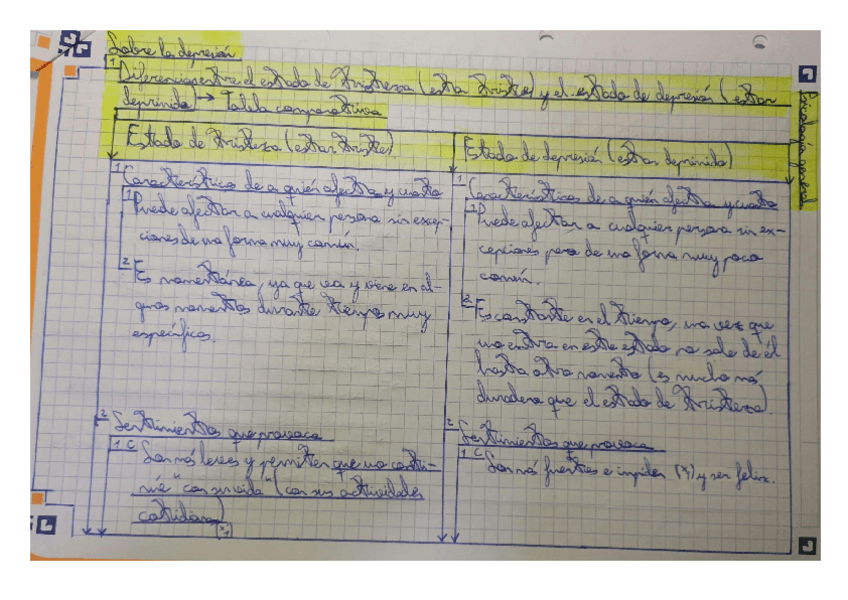 Sobre la depresión
1 Diferencias entre el estado de tristeza (estar triste) y el estado de depresión (estar
deprimido) → Tabla comparativa
Psicología general
Estado de tristeza (estar triste)
1 Característica de a quién afecta y cuánto
1 Puede afectar a cualquier persona sin excep-
ciones de una forma muy común.
2 Es momentánea, ya que va y viene en al-
gunos momentos durante tiempos muy
específicos.
2 Sentimientos que provoca
1 C Son más leves y permiten que uno conti-
núe "con su vida" (con sus actividades
cotidianas)
*1
Estado de depresión (estar deprimido)
1 Características de a quién afecta y cuánto
1 Puede afectar a cualquier persona sin ex-
cepciones pero de una forma muy poco
común.
2 Es constante en el tiempo, una vez que
uno entra en este estado no sale de él
hasta otro momento (es mucho más
duradera que el estado de tristeza).
2 Sentimientos que provoca
1 C Son más fuertes e impiden (*1) y ser feliz.